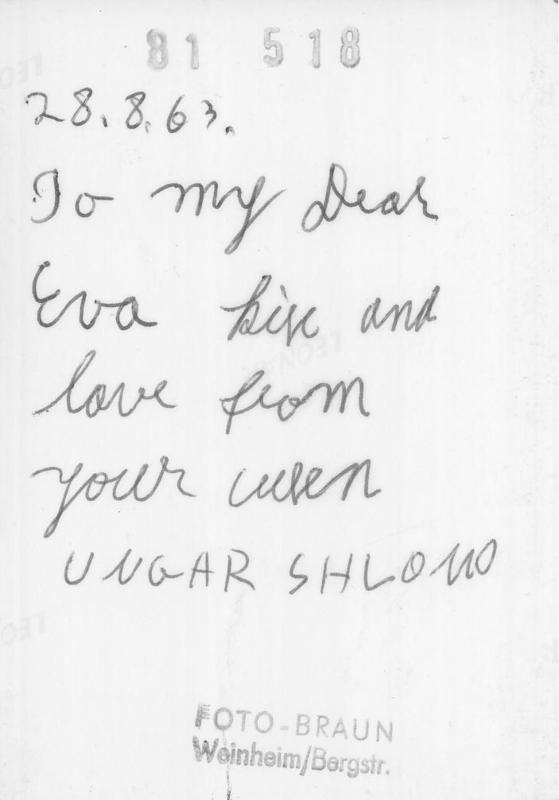 81 518
28.8.63.
To my Dear
Eva kise and
love from
your cusen
UNGAR SHLOMO
FOTO-BRAUN
Weinheim/Bergstr.